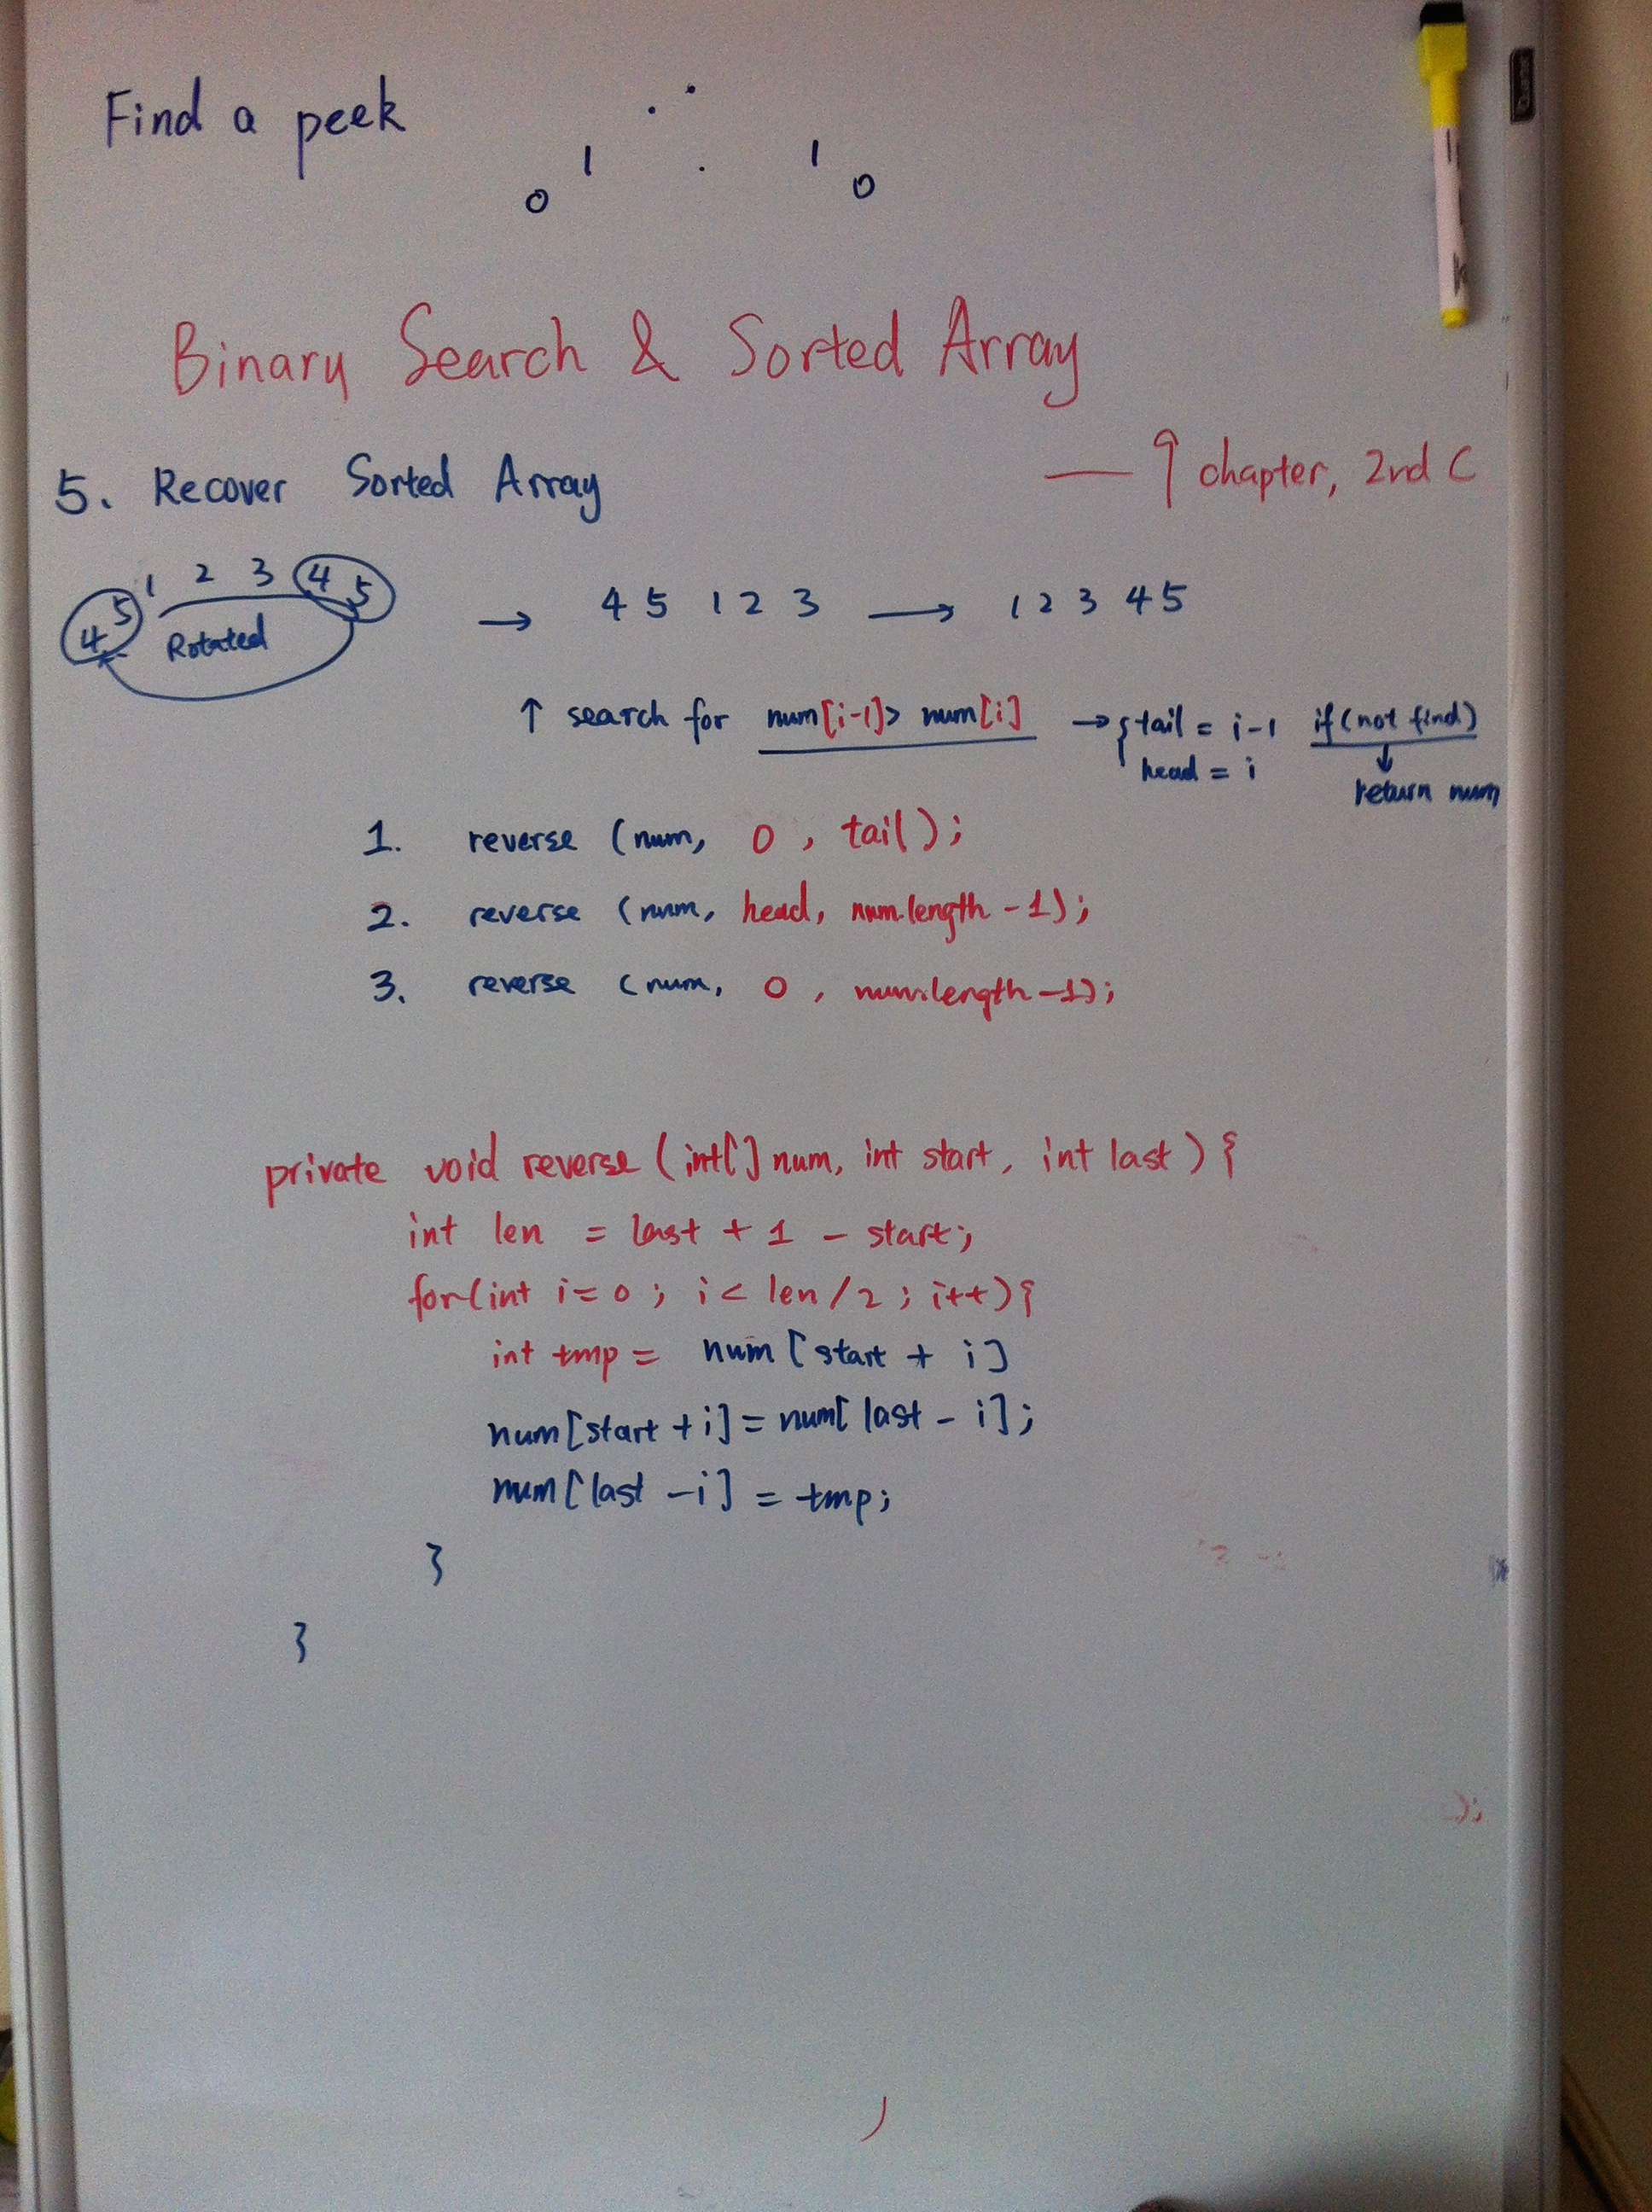 Find a peek
1 1
0 0
Binary Search & Sorted Array
— ↑ chapter, 2nd C
5. Recover Sorted Array
4 5 1 2 3 4 5 → 4 5 1 2 3 → 1 2 3 4 5
Rotated
↑ search for num[i-1]> num[i] → { tail = i-1 if(not find)
head = i ↓
return num
1. reverse (num, 0, tail);
2. reverse (num, head, num.length -1);
3. reverse (num, 0, num.length -1);
private void reverse (int[] num, int start, int last) {
int len = last + 1 - start;
for(int i=0; i< len/2; i++){
int tmp = num [start + i]
num[start +i] = num[ last - i];
num[last -i] = tmp;
}
}